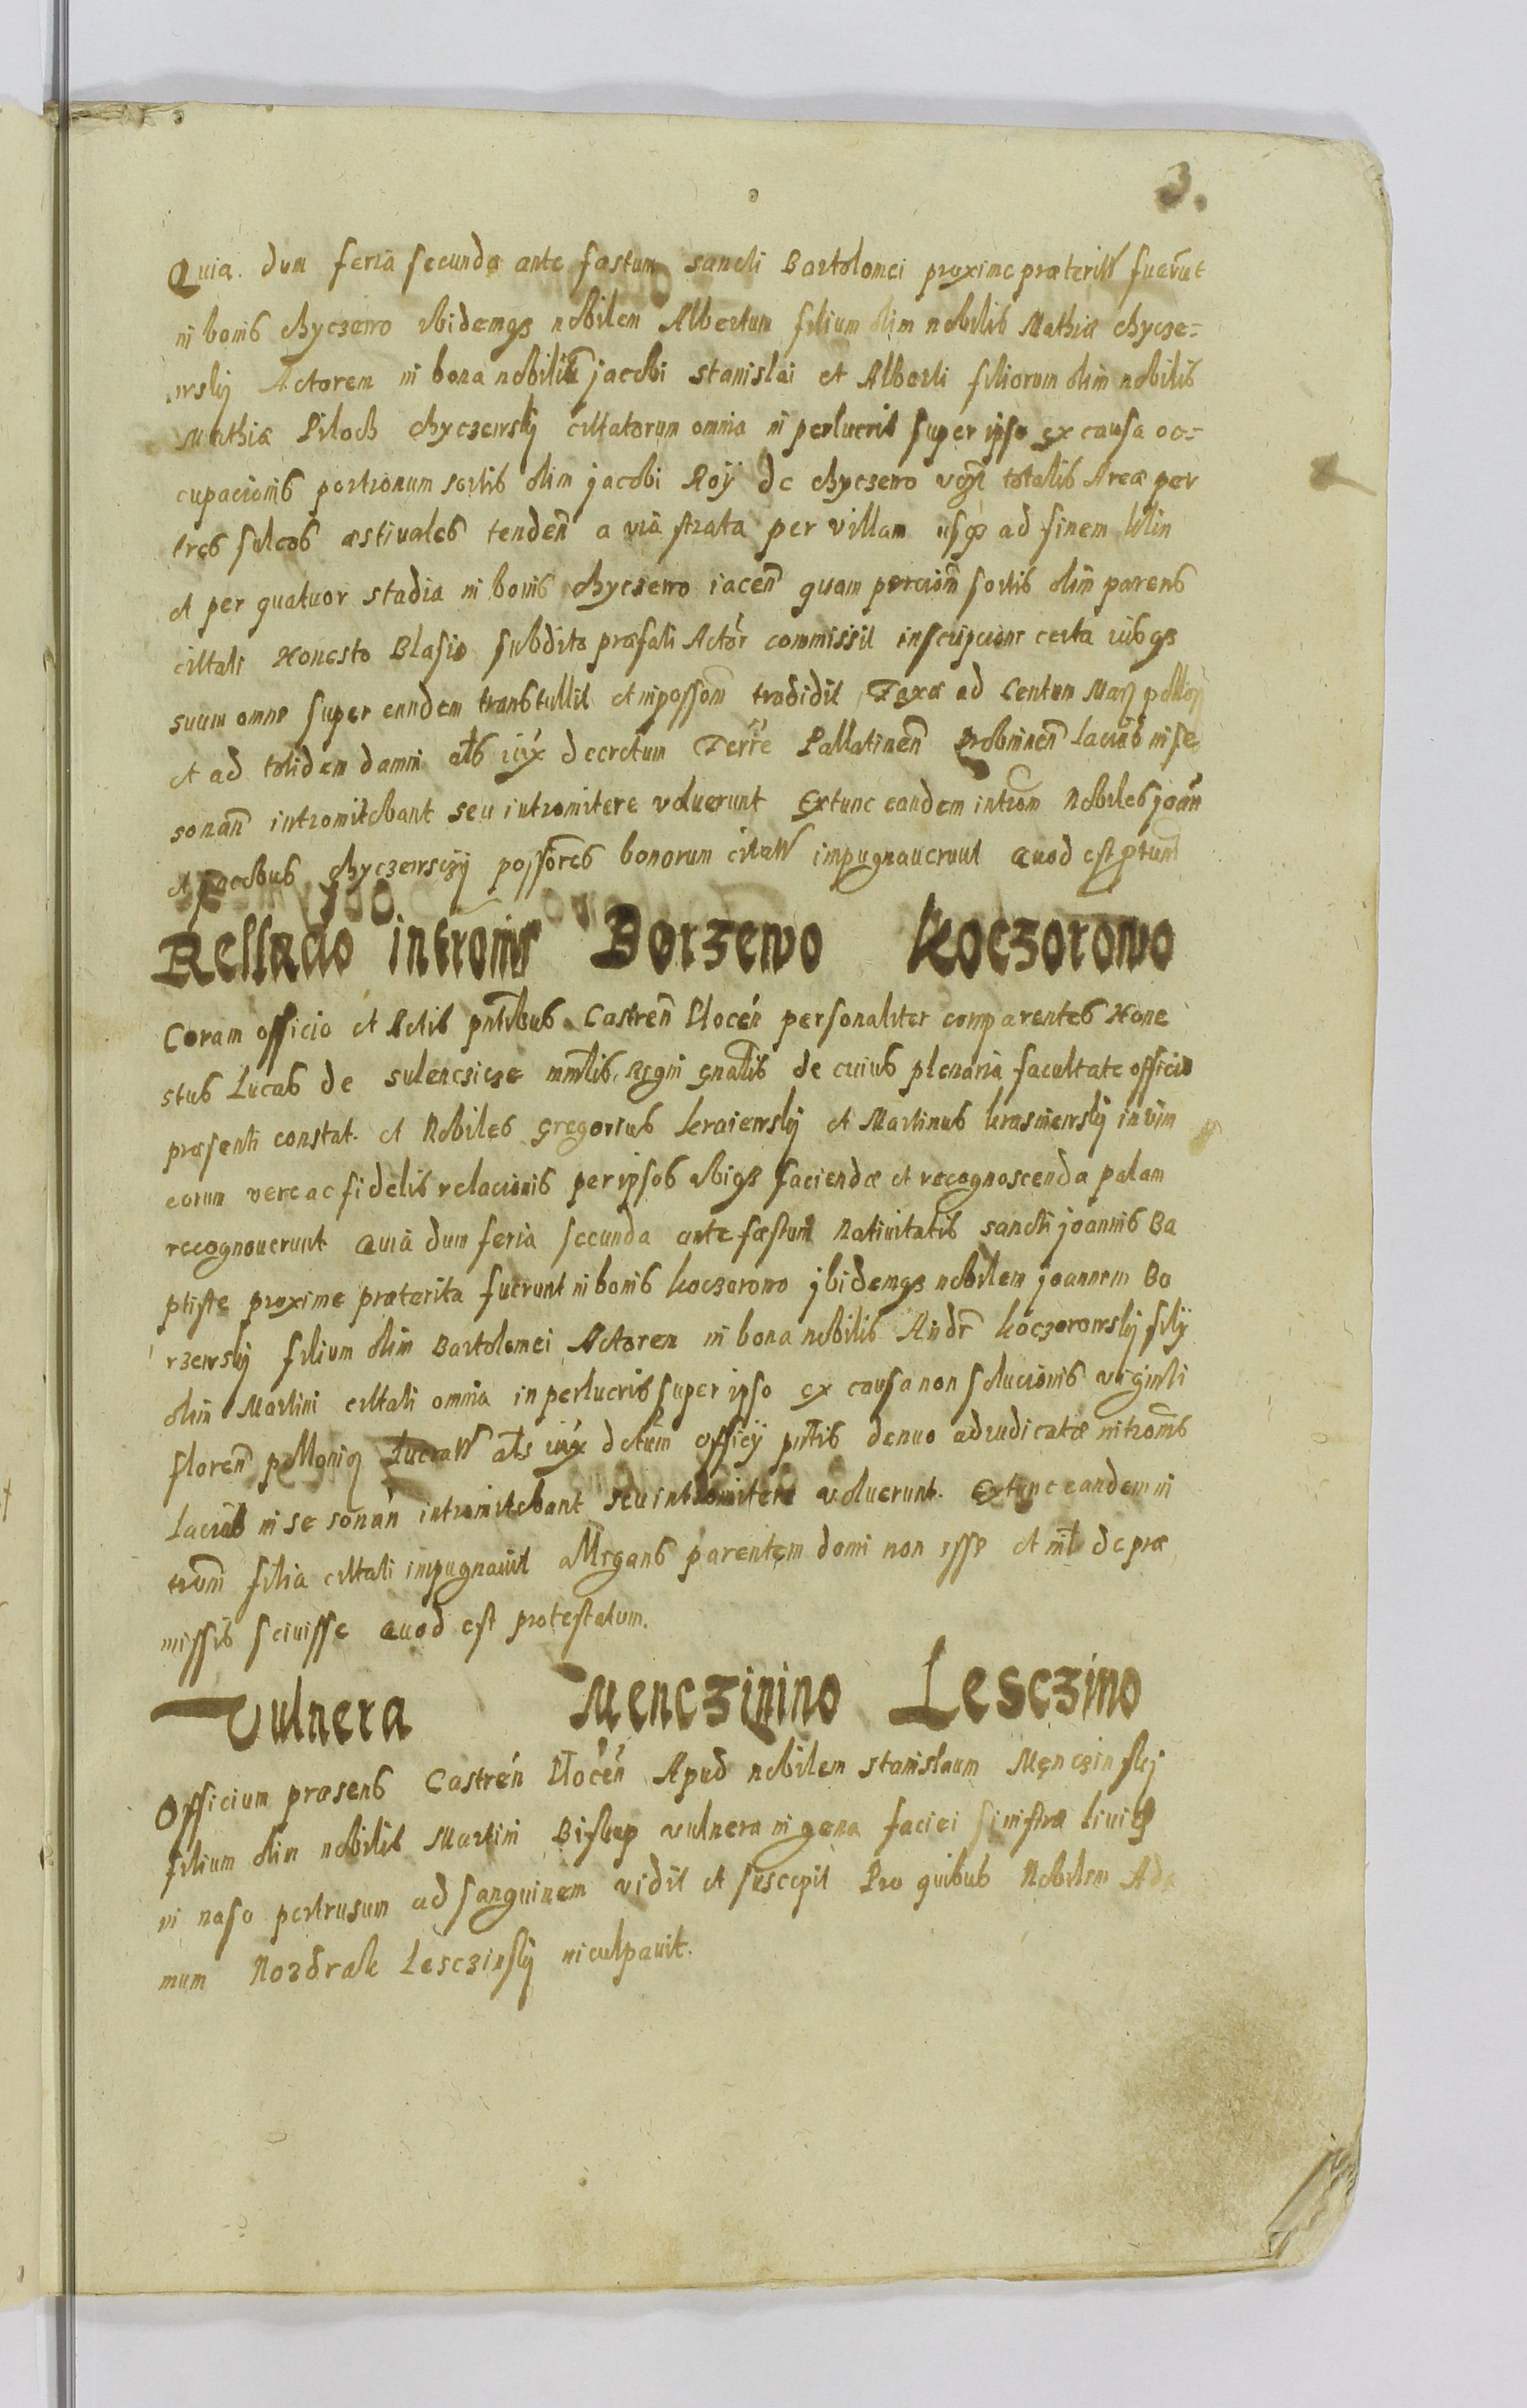 3.
Quia dum feria secunda ante fæstum sancti Bartolomei proxime præterita fuerūt
in bonis chyczewo ibidemqꝫ nobilem Albertum filium olim nobilis Mathiæ chycze=
wskÿ Actorem in bona nobiliū jacobi stanislai et Alberti filiorum olim nobilis
Mathiæ Piloch chyczewskÿ citatorum omnia in perlucris super ipso ex causa oc=
cupacionis portionum sortis olim jacobi Roÿ de chyczewo totalis Areæ per
tres sulcos æstivales tendeñ a via strata per villam usqꝫ ad finem
et per quatuor stadia in bonis chyczewo iaceñ quam porcioñ sortis olim parens
cittati Honesto Blasio subdito præfati Actor commissit inscripcione certa iusqꝫ
suum omne super eundem transtullit et inpossom̄ tradidit, Taxæ ad Centum Marː
et ad totidem damni als iux decretum Terre Pallatineñ in se
sonañ intromitebant seu intromitere voluerunt Extunc eandem introm̄ Nobiles joañ
et jacobus chyczewsczÿ possores bonorum impugnaverunt Quod est ptum̄
Rellacio intromis Borzewo Koczorowo
Coram officio et Actis pntibus Castreñ Ploceñ personaliter comparentes Hone
stus Lucas de sulencsicze mntlis Regni gnalis de cuius plenaria facultate officio
præsenti constat. et Nobiles Gregorius kraiewskÿ et Martinus krasniewskÿ in vim
eorum vere ac fidelis relacionis per ipsos ibiqꝫ faciendæ et recognoscenda palam
recognoverunt Quia dum feria secunda ante fæstum Nativitatis sancti joannis Ba
ptiste proxime præterita fuerunt in bonis koczorowo jbidemqꝫ nobilem joannem Bo
rzewskÿ filium olim Bartolomei Actorem in bona nobilis Andr koczorowskÿ filÿ
olim Martini cittati omnia in perlucris super ipso ex causa non solucionis viginti
floreñ als iux dctum officÿ pntis denuo adiudicatæ introms
Lacius in se sonañ intromitebant seu intromitere voluerunt. Extunc eandem in
trom̄ filia cittati impugnavit allegans parentem domi non esse et nil de præ
missis scivisse Quod est protestatum.
Vulnera Menczinino Lesczino
Officium præsens Castreñ Ploceñ Apud nobilem stanislaum Menczinskj
filium olim nobilis Martini Biskup vulnera in gena faciei sinistra
in naso pertrusum ad sanguinem vidit et suscepit Pro quibus Nobilem Ada
mum Nozdrak Lesczinskÿ inculpavit.